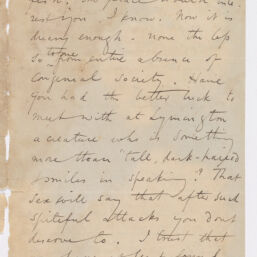 rest you I know. Now it is
dreary enough - none the less
so to me from entire absence of
Congenial society. Have
you had the better luck to
meet with at Lymington
a creature who is something
more than 'tall, dark-haired
& smiles in speaking'? That
sex will say that after such
spiteful attacks you don't
deserve to. I trust that